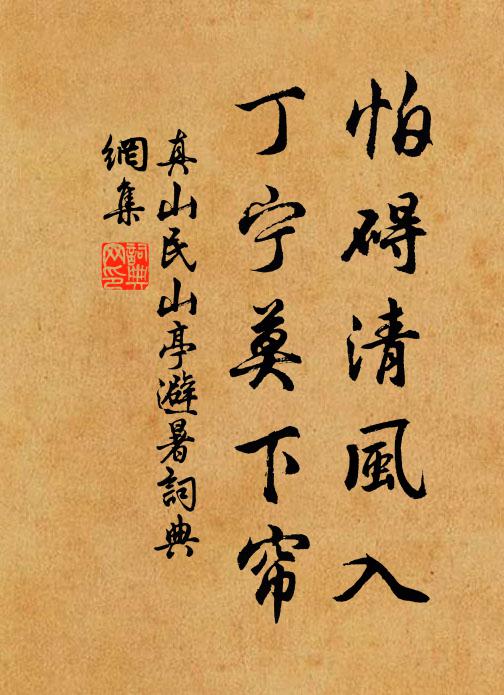 怕碍清風入
丁宁莫下帘
真山民山亭避暑詞典
網集
詞典
网印